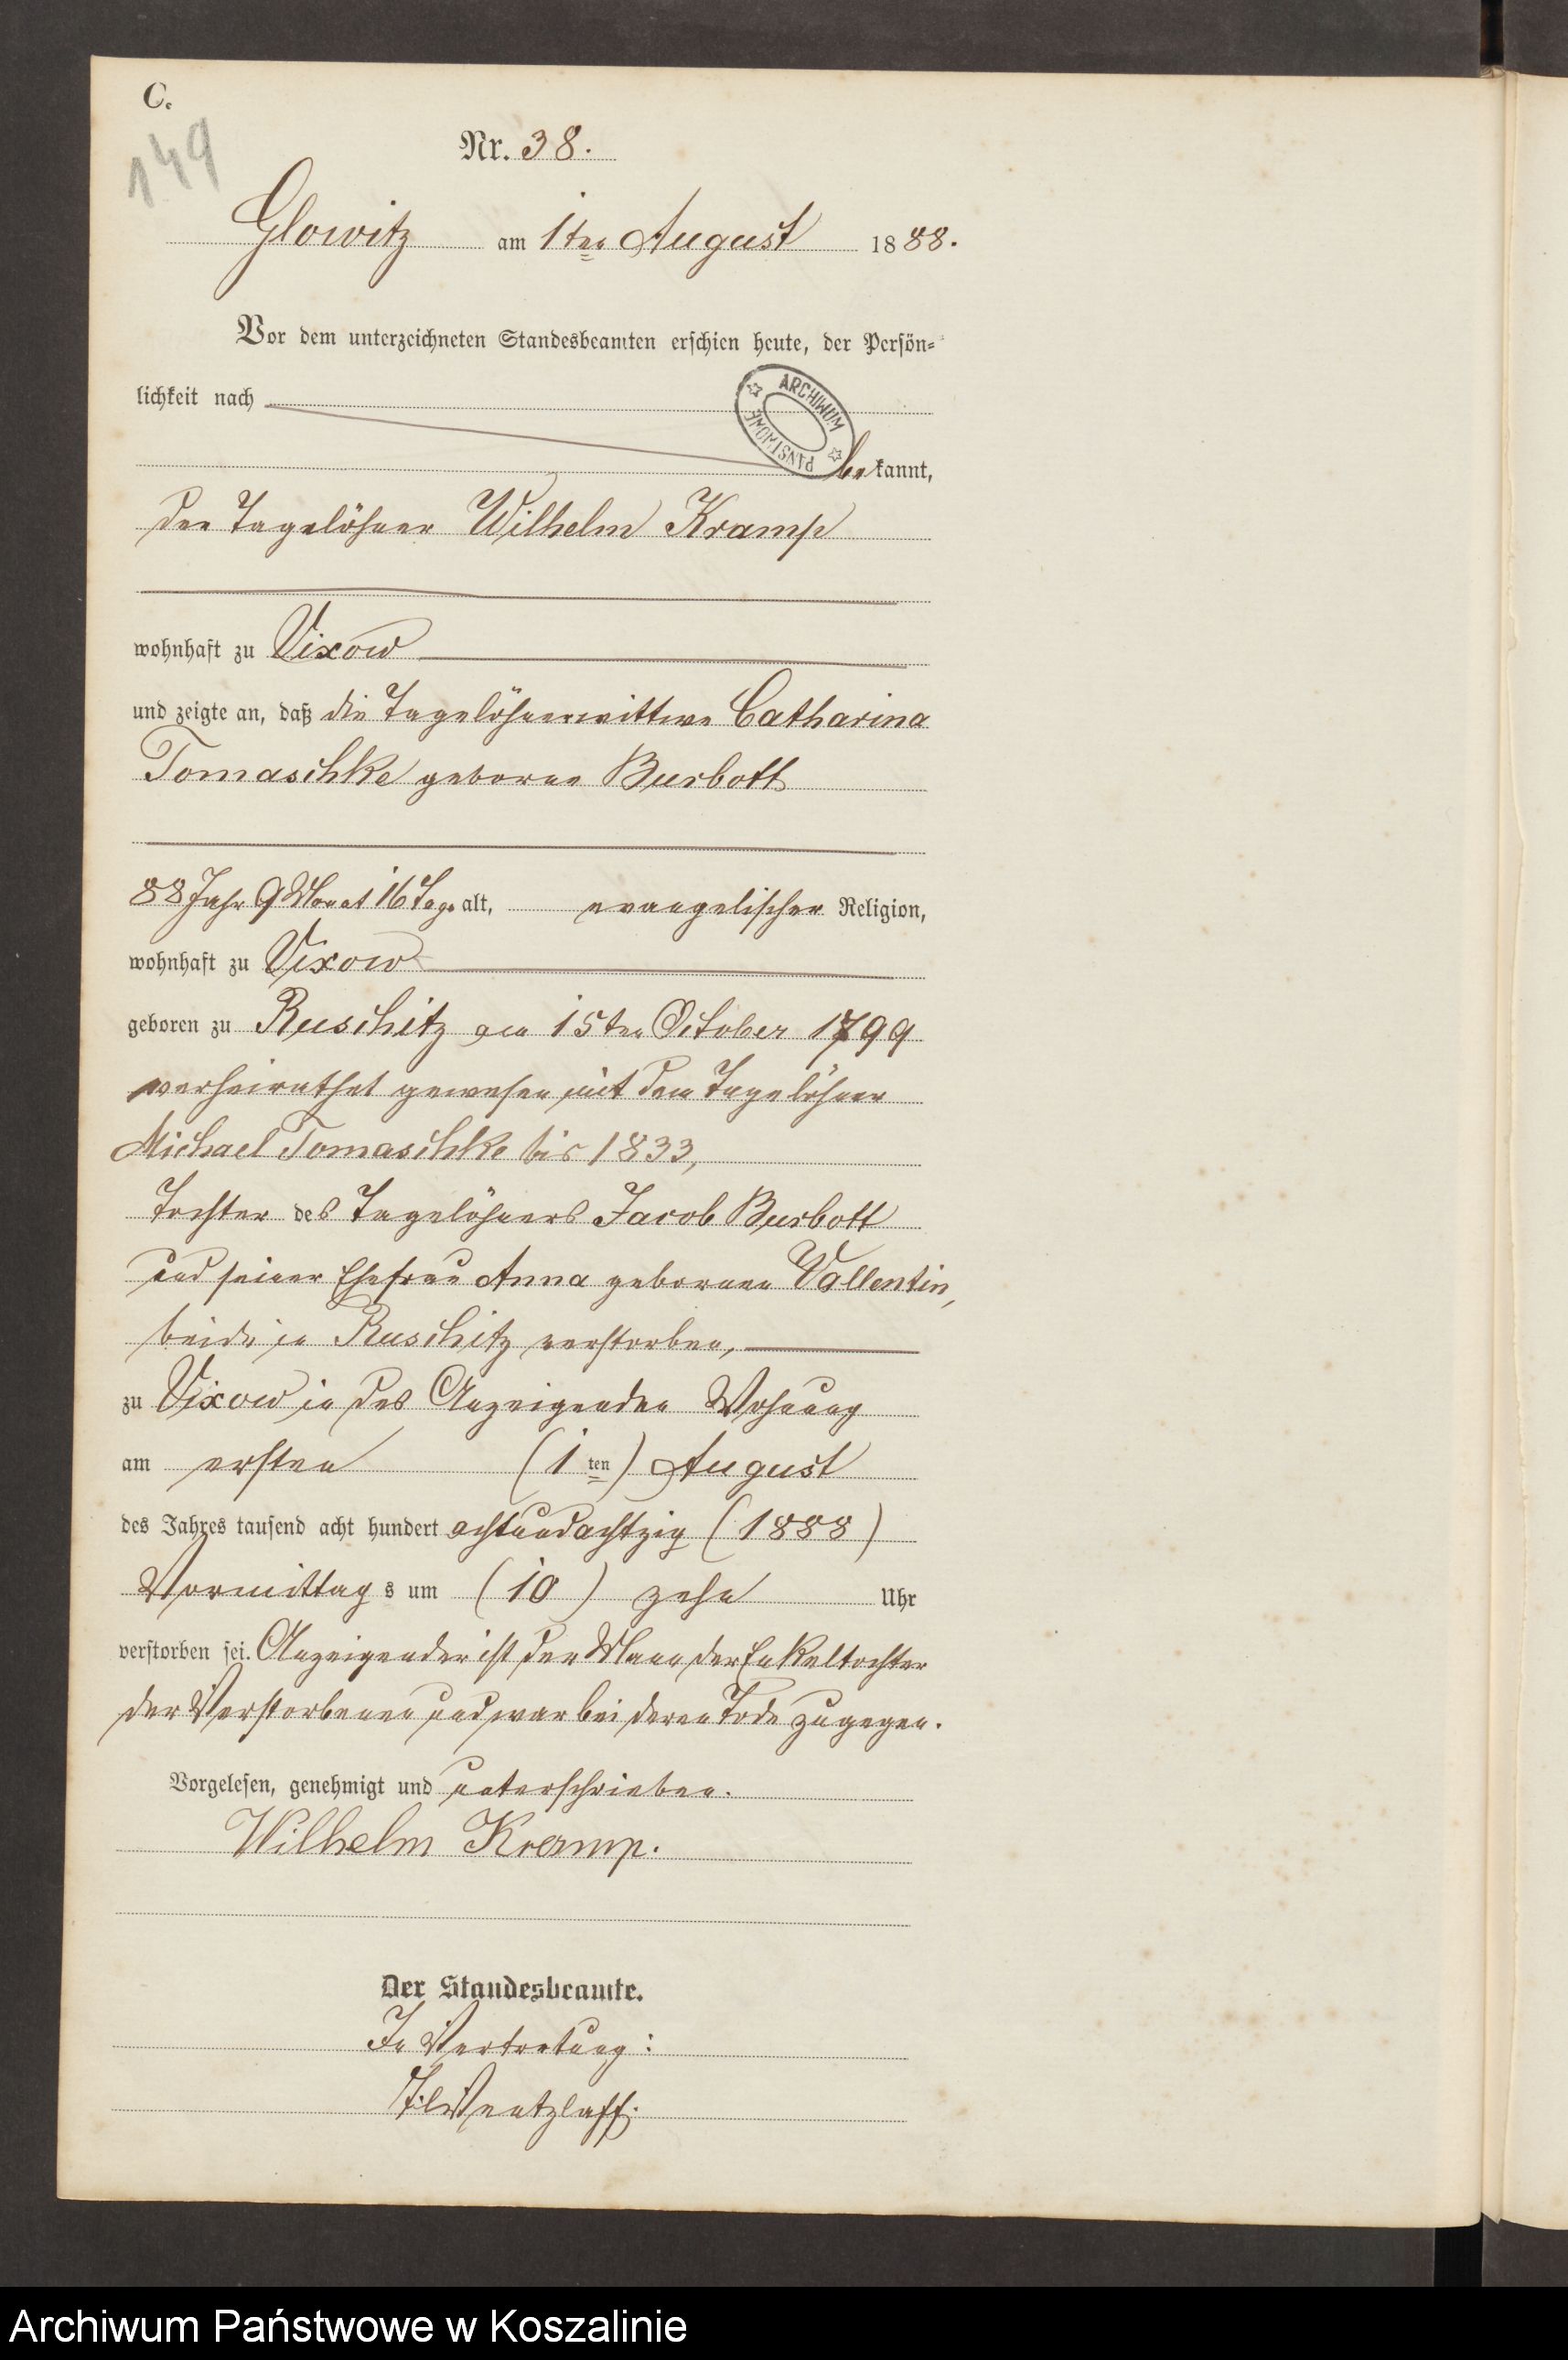 C.
149
Nr. 38.
Glowitz am 1ten August 1888.
Vor dem unterzeichneten Standesbeamten erschien heute, der Persön-
lichkeit nach
ARCHIWUM PAŃSTWOWE
bekannt,
der Tagelöhner Wilhelm Kramp
wohnhaft zu Vixow
und zeigte an, daß die Tagelöhnerwittwe Catharina
Tomaschke geborne Burbott
88 Jahr 9 Monat 16 Tage alt, evangelischer Religion,
wohnhaft zu Vixow
geboren zu Ruschitz am 15ten October 1799
verheirathet gewesen mit dem Tagelöhner
Michael Tomaschke bis 1833,
Tochter des Tagelöhners Jacob Burbott
und seiner Ehefrau Anna gebornen Vallentin,
beide in Ruschitz verstorben,
zu Vixow in des Anzeigenden Wohnung
am ersten (1ten) August
des Jahres tausend acht hundert achtundachtzig (1888)
Vormittags um (10) zehn Uhr
verstorben sei. Anzeigender ist der Mann der Enkeltochter
der Verstorbenen und war bei deren Tode zugegen.
Vorgelesen, genehmigt und unterschrieben.
Wilhelm Kramp.
Der Standesbeamte.
In Vertretung:
Ventzlaff.
Archiwum Państwowe w Koszalinie